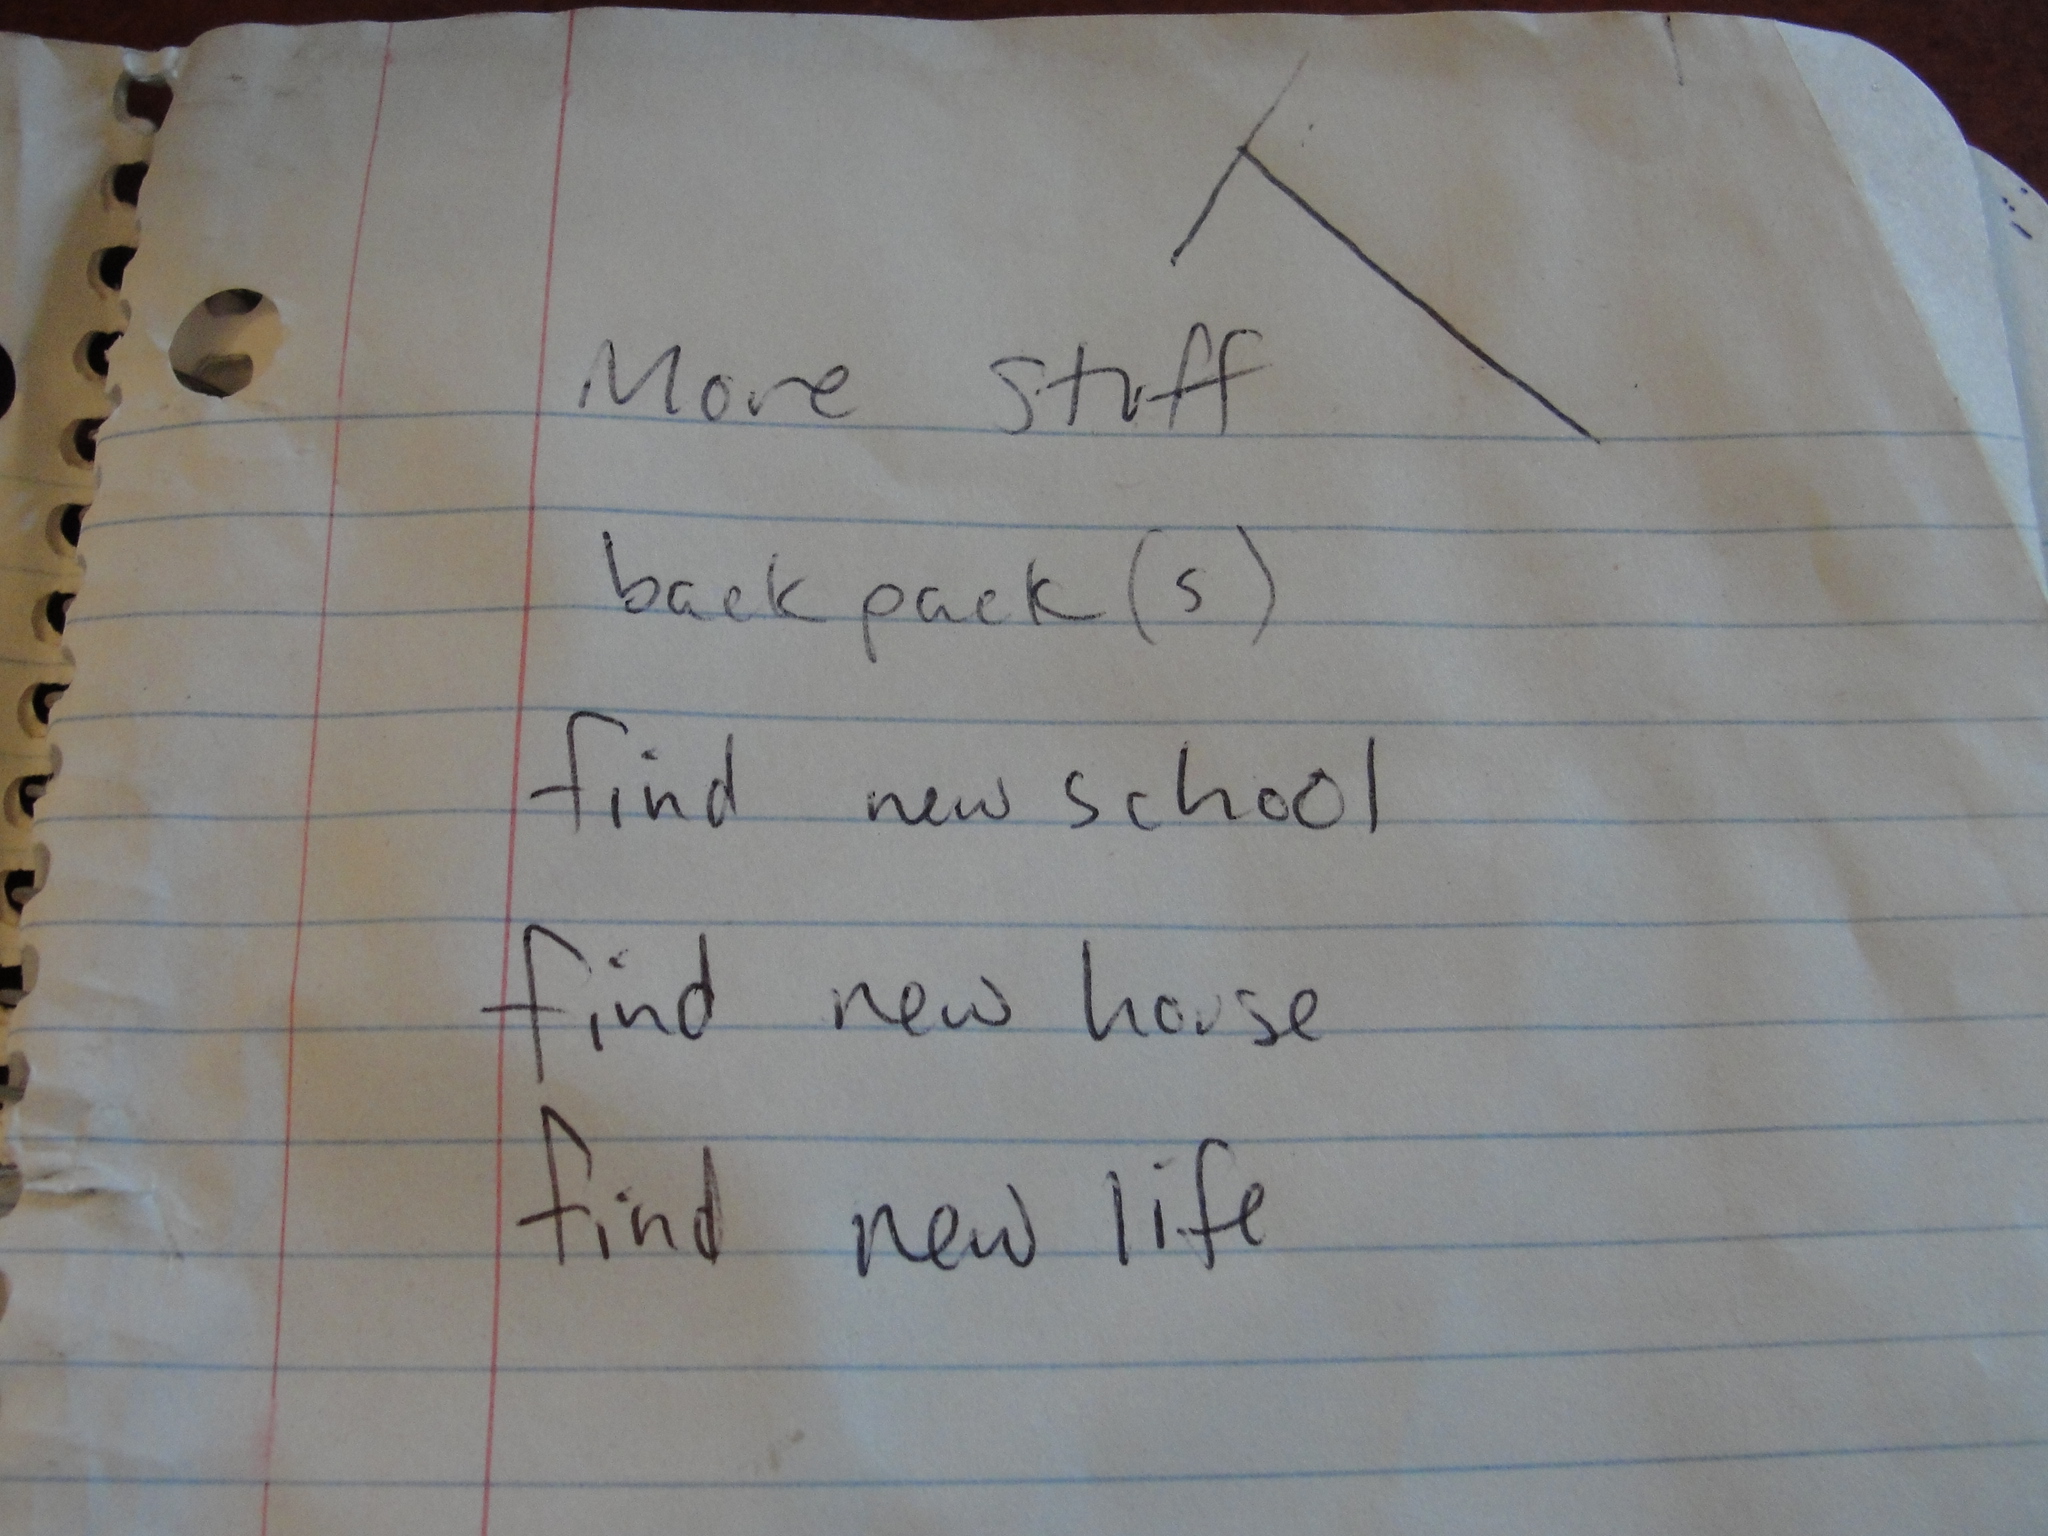 More stuff
backpack(s)
find new school
find new house
find new life